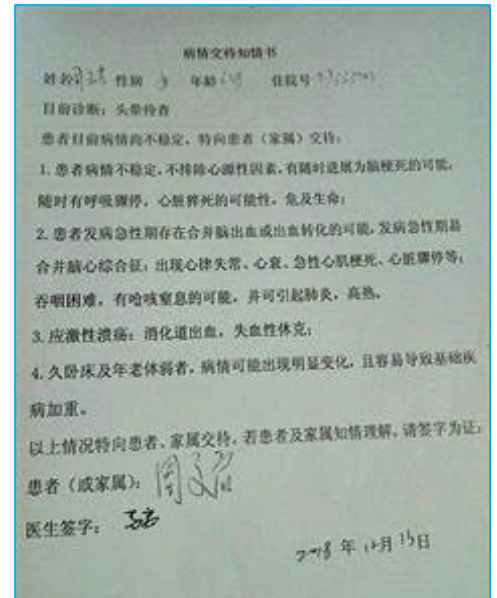 病情交待知情书
姓名 性别 年龄 住院号
目前诊断：头晕待查
患者目前病情尚不稳定，特向患者（家属）交待：
1. 患者病情不稳定，不排除心源性因素，有随时进展为脑梗死的可能，
随时有呼吸骤停，心脏猝死的可能性，危及生命；
2. 患者发病急性期存在合并脑出血或出血转化的可能，发病急性期易
合并脑心综合征：出现心律失常、心衰、急性心肌梗死、心脏骤停等；
吞咽困难，有呛咳窒息的可能，并可引起肺炎，高热。
3. 应激性溃疡：消化道出血，失血性休克；
4. 久卧床及年老体弱者，病情可能出现明显变化，且容易导致基础疾
病加重。
以上情况特向患者、家属交待，若患者及家属知情理解，请签字为证：
患者（或家属）：
医生签字：
2018 年 12月 15日